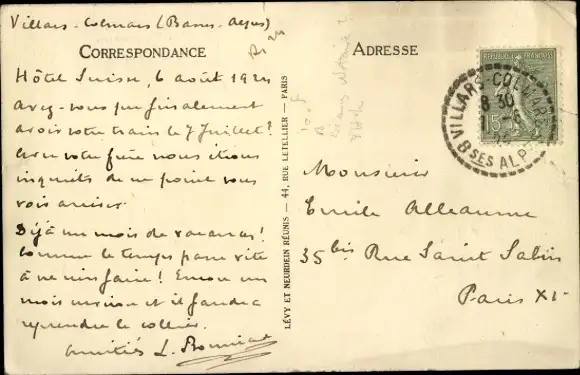 Villars-Colmars (Basses-Alpes)
CORRESPONDANCE
Hôtel Suisse, 6 août 1924
Avez-vous pu finalement
avoir votre train le 7 Juillet?
votre frère nous étions
inquiets de ne point vous
voir arriver.
Déjà un mois de vacances!
Comme le temps passe vite
à ne rien faire! Encore un
mois environ et il faudra
reprendre le collier.
Amitiés L.
LÉVY ET NEURDEIN RÉUNIS — 44, RUE LETELLIER — PARIS
ADRESSE
RÉPUBLIQUE FRANÇAISE
15
VILLARS-COLMARS
8 30
BSES ALP
Monsieur
Emile Alleaume
35bis Rue Saint Sabin
Paris XI